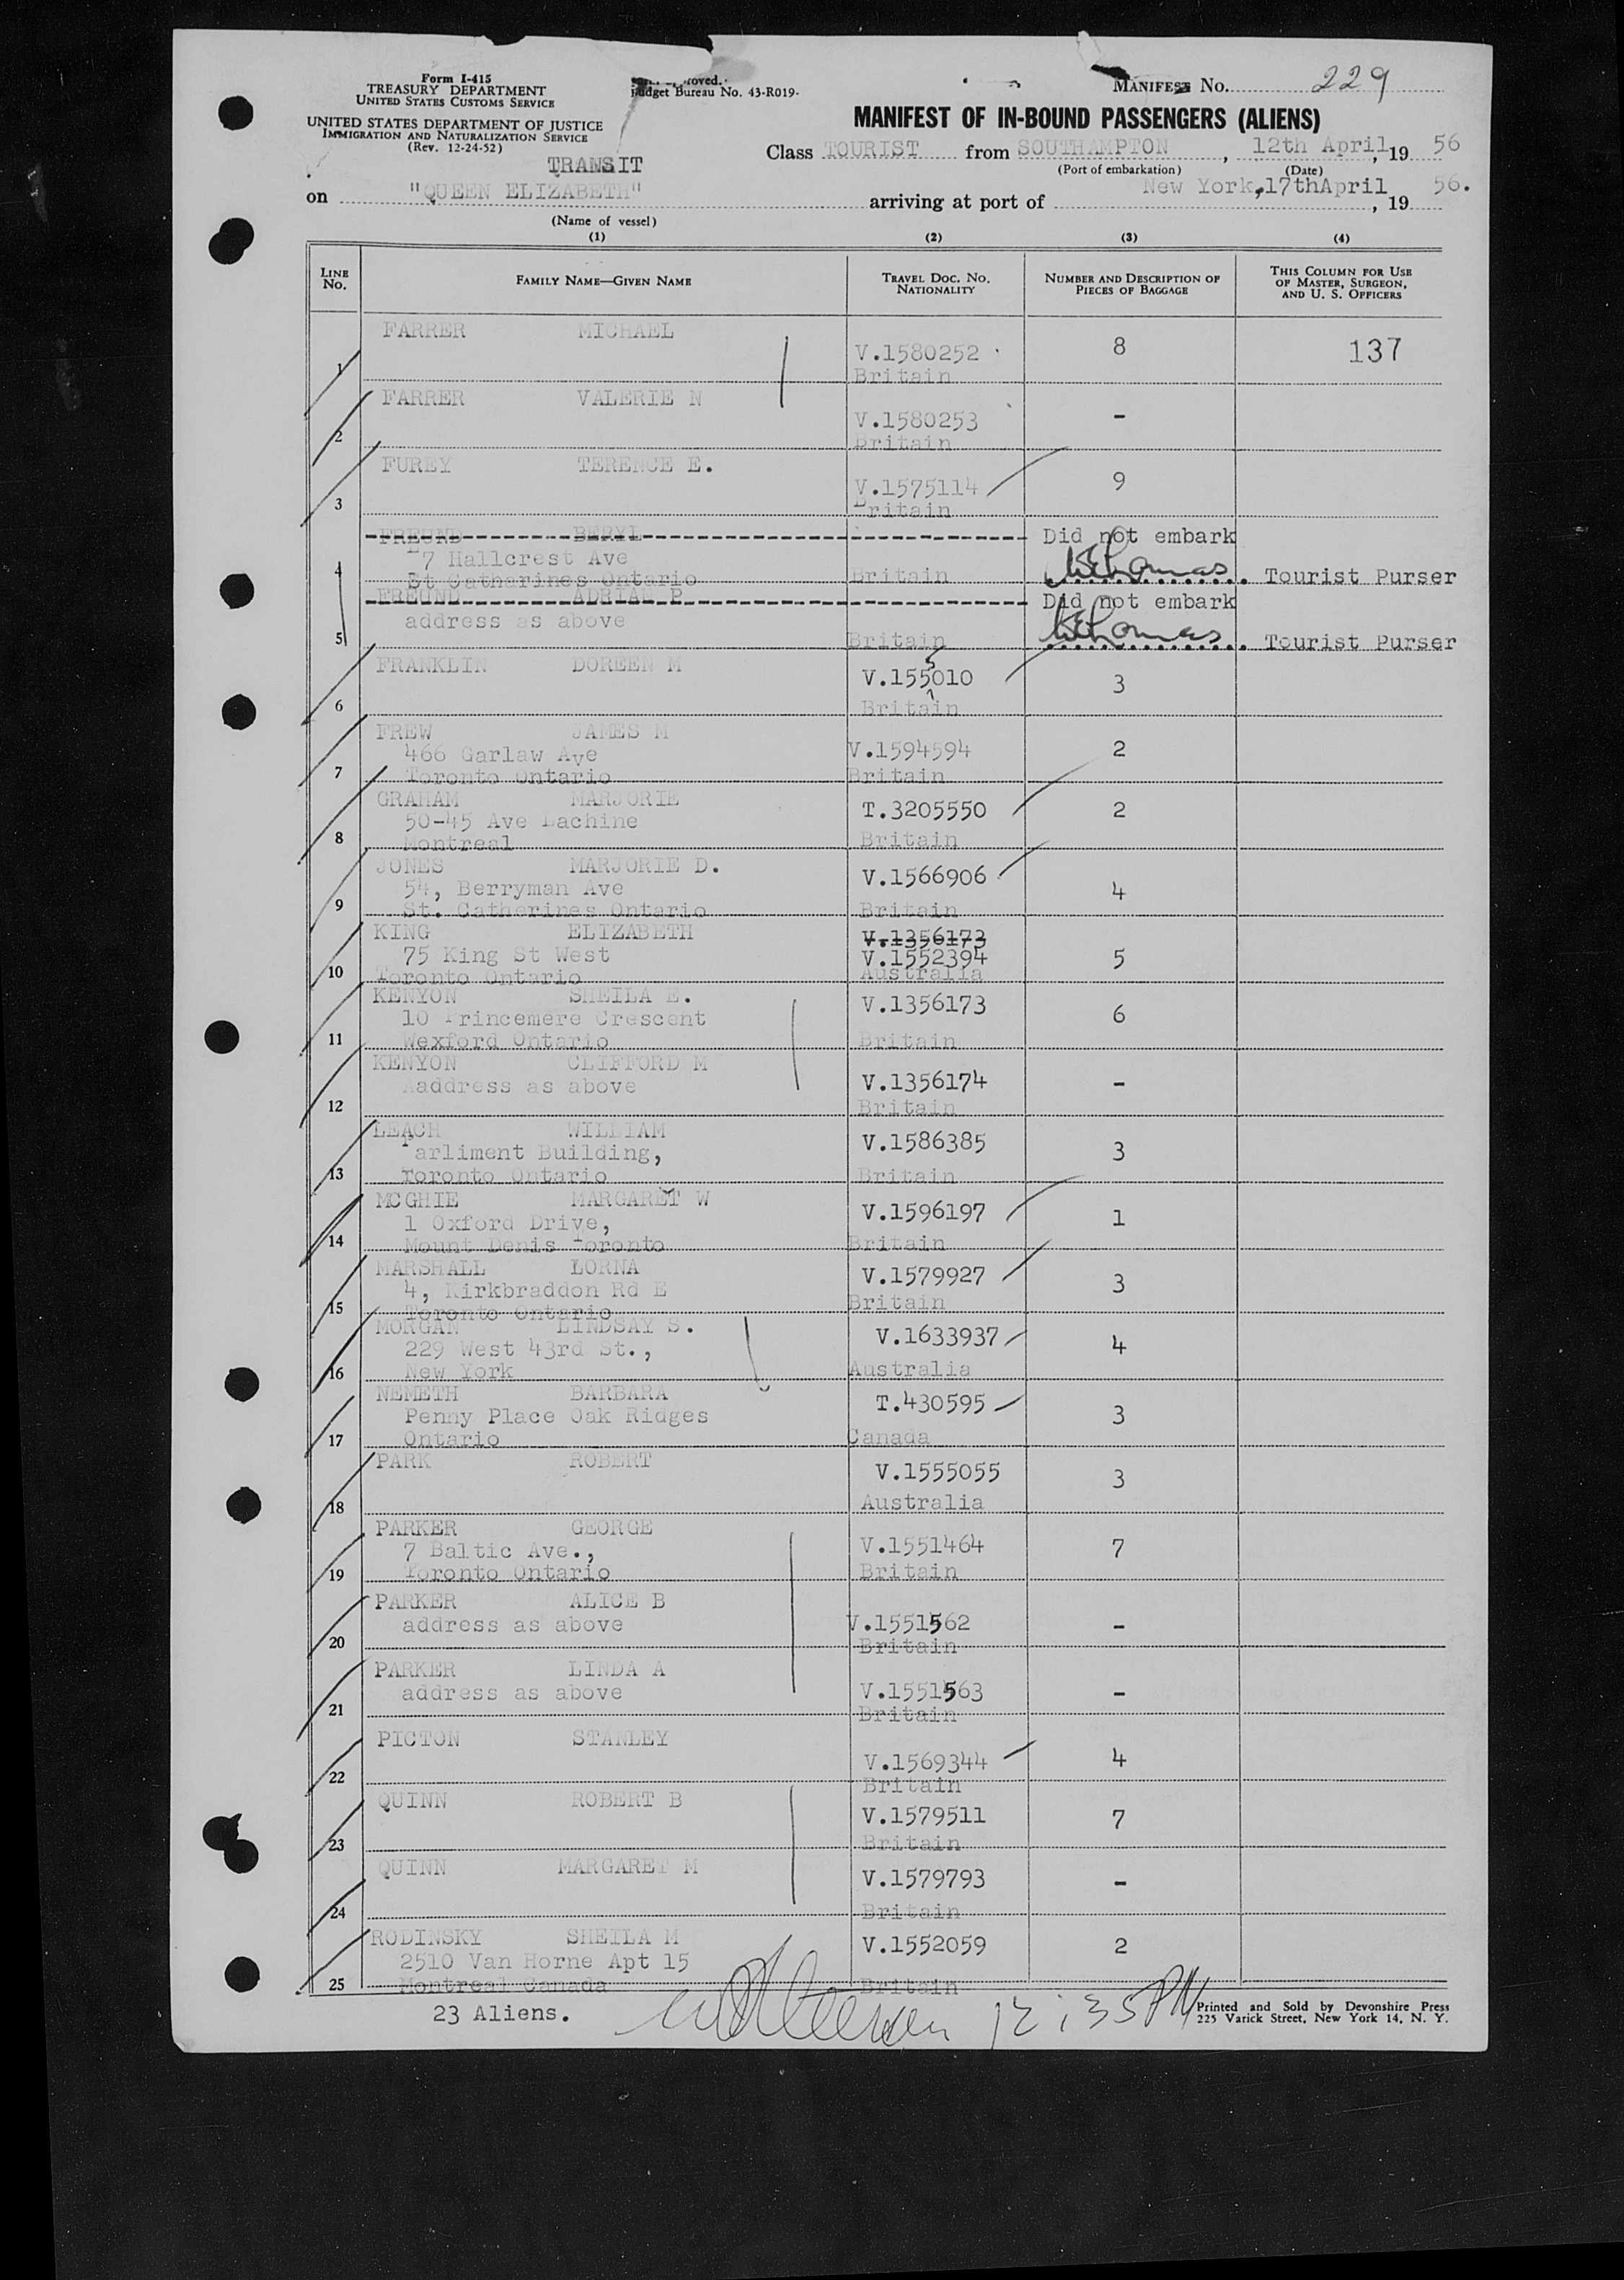 Form I-415
TREASURY DEPARTMENT
UNITED STATES CUSTOMS SERVICE
UNITED STATES DEPARTMENT OF JUSTICE
IMMIGRATION AND NATURALIZATION SERVICE
(Rev. 12-24-52)
Budget Bureau No. 43-R019-
MANIFEST No. 229
MANIFEST OF IN-BOUND PASSENGERS (ALIENS)
TRANSIT
Class TOURIST from SOUTHAMPTON, 12th April, 19 56
(Port of embarkation) (Date)
on "QUEEN ELIZABETH" arriving at port of New York, 17th April, 19 56.
(Name of vessel)
(1) (2) (3) (4)
LINE No. FAMILY NAME—GIVEN NAME TRAVEL DOC. NO. NATIONALITY NUMBER AND DESCRIPTION OF PIECES OF BAGGAGE THIS COLUMN FOR USE OF MASTER, SURGEON, AND U. S. OFFICERS
FARRER MICHAEL
1 V.1580252 8 137
Britain
FARRER VALERIE N
2 V.1580253 -
Britain
FUREY TERENCE E.
3 V.1575114 9
Britain
FREUND BERYL Did not embark
7 Hallcrest Ave
4 St Catharines Ontario Britain Tourist Purser
FREUND ADRIAN P Did not embark
address as above
5 Britain Tourist Purser
FRANKLIN DOREEN M
6 V.1555010 3
Britain
FREW JAMES M
466 Carlaw Ave V.1594594 2
7 Toronto Ontario Britain
GRAHAM MARJORIE T.3205550 2
50-45 Ave Lachine
8 Montreal Britain
JONES MARJORIE D. V.1566906
54, Berryman Ave 4
9 St. Catherines Ontario Britain
KING ELIZABETH V.1356173
75 King St West V.1552394 5
10 Toronto Ontario Australia
KENYON SHEILA E. V.1356173
10 Princemere Crescent 6
11 Wexford Ontario Britain
KENYON CLIFFORD M
Aaddress as above V.1356174 -
12 Britain
LEACH WILLIAM V.1586385
Parliment Building, 3
13 Toronto Ontario Britain
MCGHIE MARGARET W V.1596197
1 Oxford Drive, 1
14 Mount Denis Toronto Britain
MARSHALL LORNA V.1579927
4, Kirkbraddon Rd E 3
15 Toronto Ontario Britain
MORGAN LINDSAY S. V.1633937
229 West 43rd St., 4
16 New York Australia
NEMETH BARBARA T.430595
Penny Place Oak Ridges 3
17 Ontario Canada
PARK ROBERT V.1555055 3
18 Australia
PARKER GEORGE
7 Baltic Ave., V.1551464 7
19 Toronto Ontario Britain
PARKER ALICE B
address as above V.1551562 -
20 Britain
PARKER LINDA A
address as above V.1551563 -
21 Britain
PICTON STANLEY
V.1569344 4
22 Britain
QUINN ROBERT B
V.1579511 7
23 Britain
QUINN MARGARET M
V.1579793 -
24 Britain
RODINSKY SHEILA M V.1552059 2
2510 Van Horne Apt 15
25 Montreal Canada Britain
23 Aliens. 12:35 PM
Printed and Sold by Devonshire Press
225 Varick Street, New York 14, N. Y.